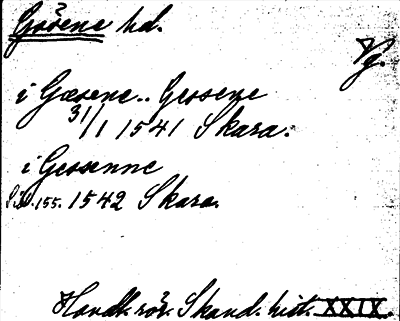 Gösene hd.
Vg.
i Gæsene.. Gessene
31/1 1541 Skara.
i Gessenne
Sid. 155. 1542 Skara.
Handl. rör. Skand. hist. XXIX.